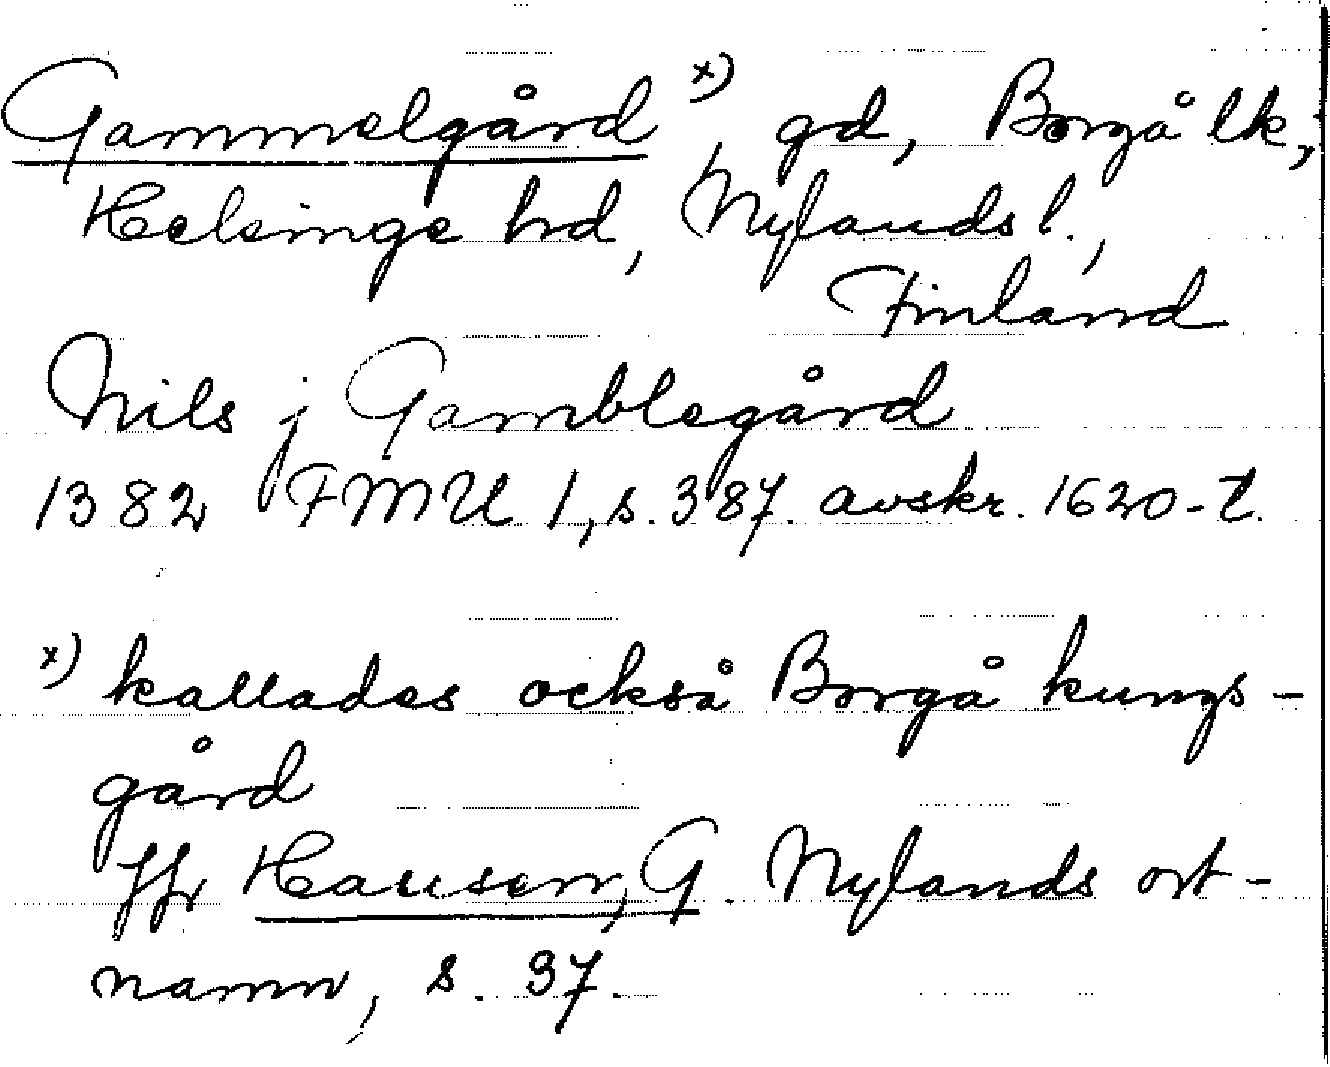 Gammelgård x), gd, Borgå lk,
Helsinge hd, Nylands l.,
Finland
Nils j Gamblegård
1382 FMU 1, s. 387. avskr. 1620-t.
x) kallades också Borgå kungs-
gård
Jfr Hausen, G. Nylands ort-
namn, s. 37.